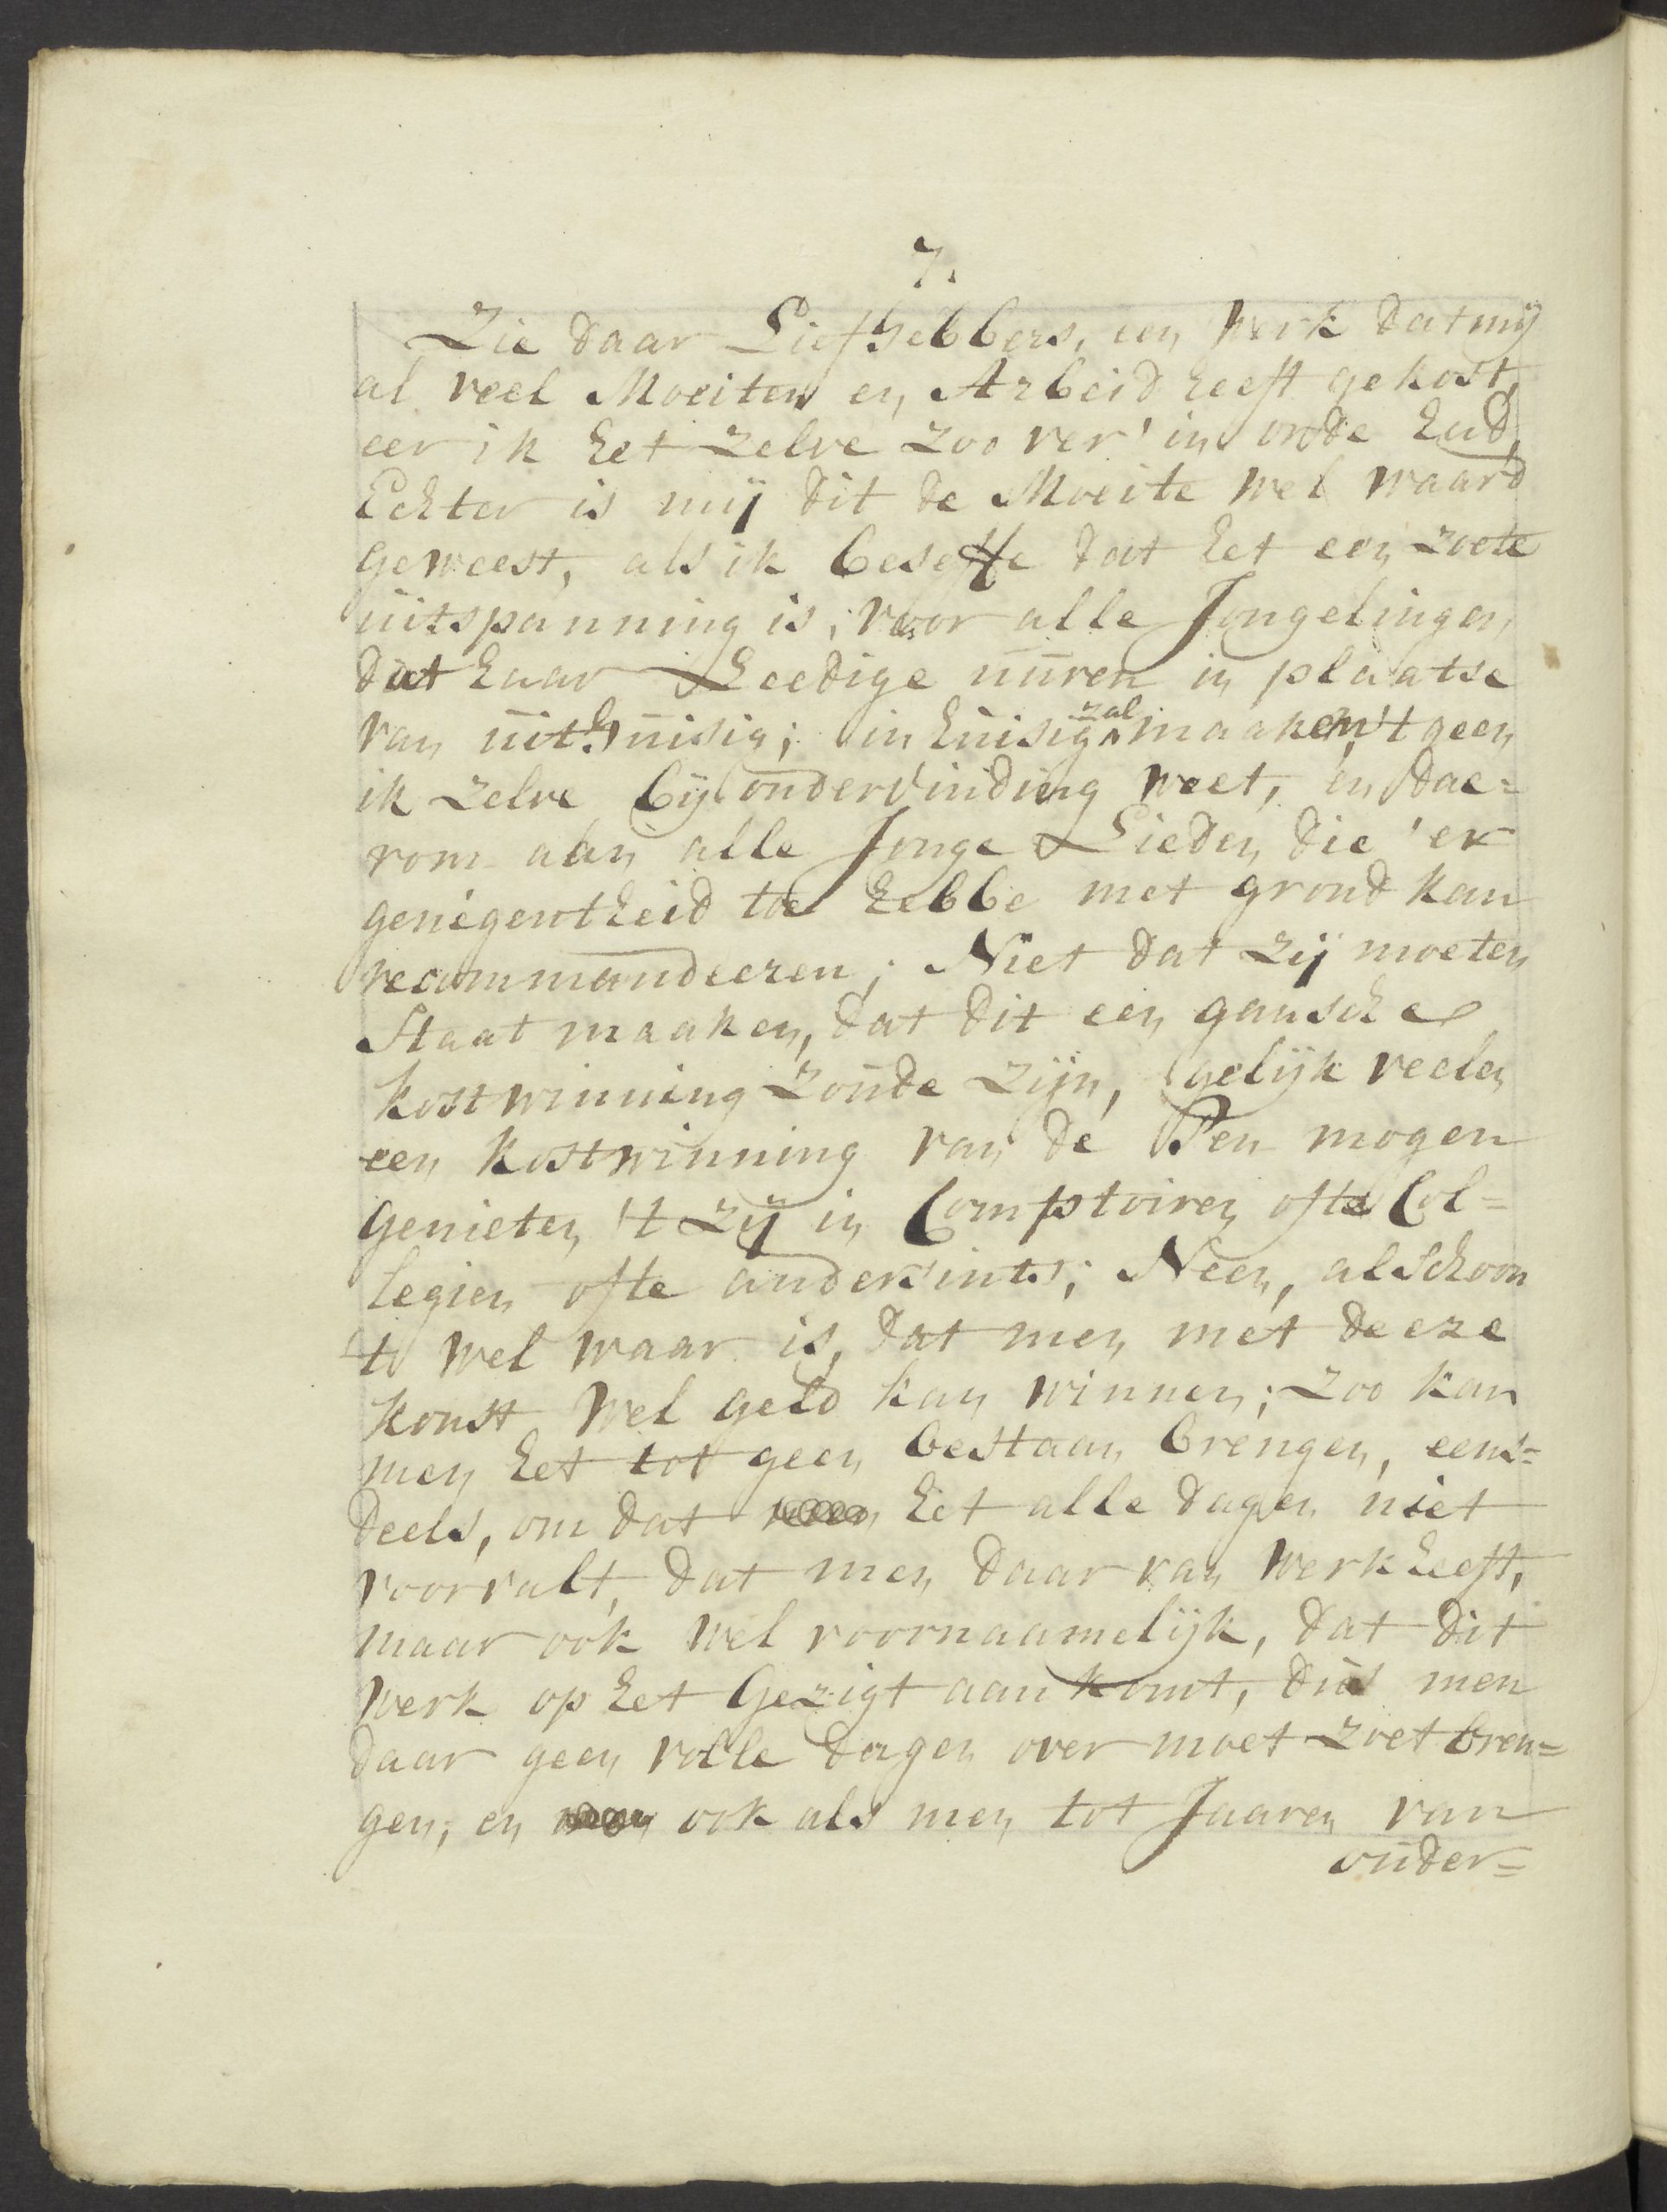 7.
Zie daar Liefhebbers, een Werk dat mij
al veel Moeiten en Arbeid heeft gekost,
eer ik het zelve zoo ver' in orde had,
Echter is mij dit de Moeite wel waard
geweest, als ik beseffe dat het een zoete
uitspanning is, voor alle Jongelingen,
dat haar Leedige uuren in plaatse
van uithuisig; in huisig zal maaken, 't geen
ik zelve bij ondervinding weet, en dae=
rom aan alle Jonge Lieden die 'er
geniegentheid toe hebbe met grond kan
recommandeeren; Niet dat zij moeten
Staat maaken, dat dit een gansche
kostwinning zoude zijn, gelijk veelen
een kostwinning van de Pen mogen
genieten 't zij in Comptoiren ofte Col=
legien ofte andersints; Neen, alschoon
't wel waar is, dat men met deeze
konst wel geld kan winnen; zoo kan
men het tot geen bestaan brengen, eens=
deels, om dat het alle dagen niet
voorvalt, dat men daar van werk heeft,
maar ook wel voornaamelijk, dat dit
werk op het Gezigt aan komt, dus men
daar geen volle dagen over moet zoet bren=
gen; en ook als men tot Jaaren van
ouder=